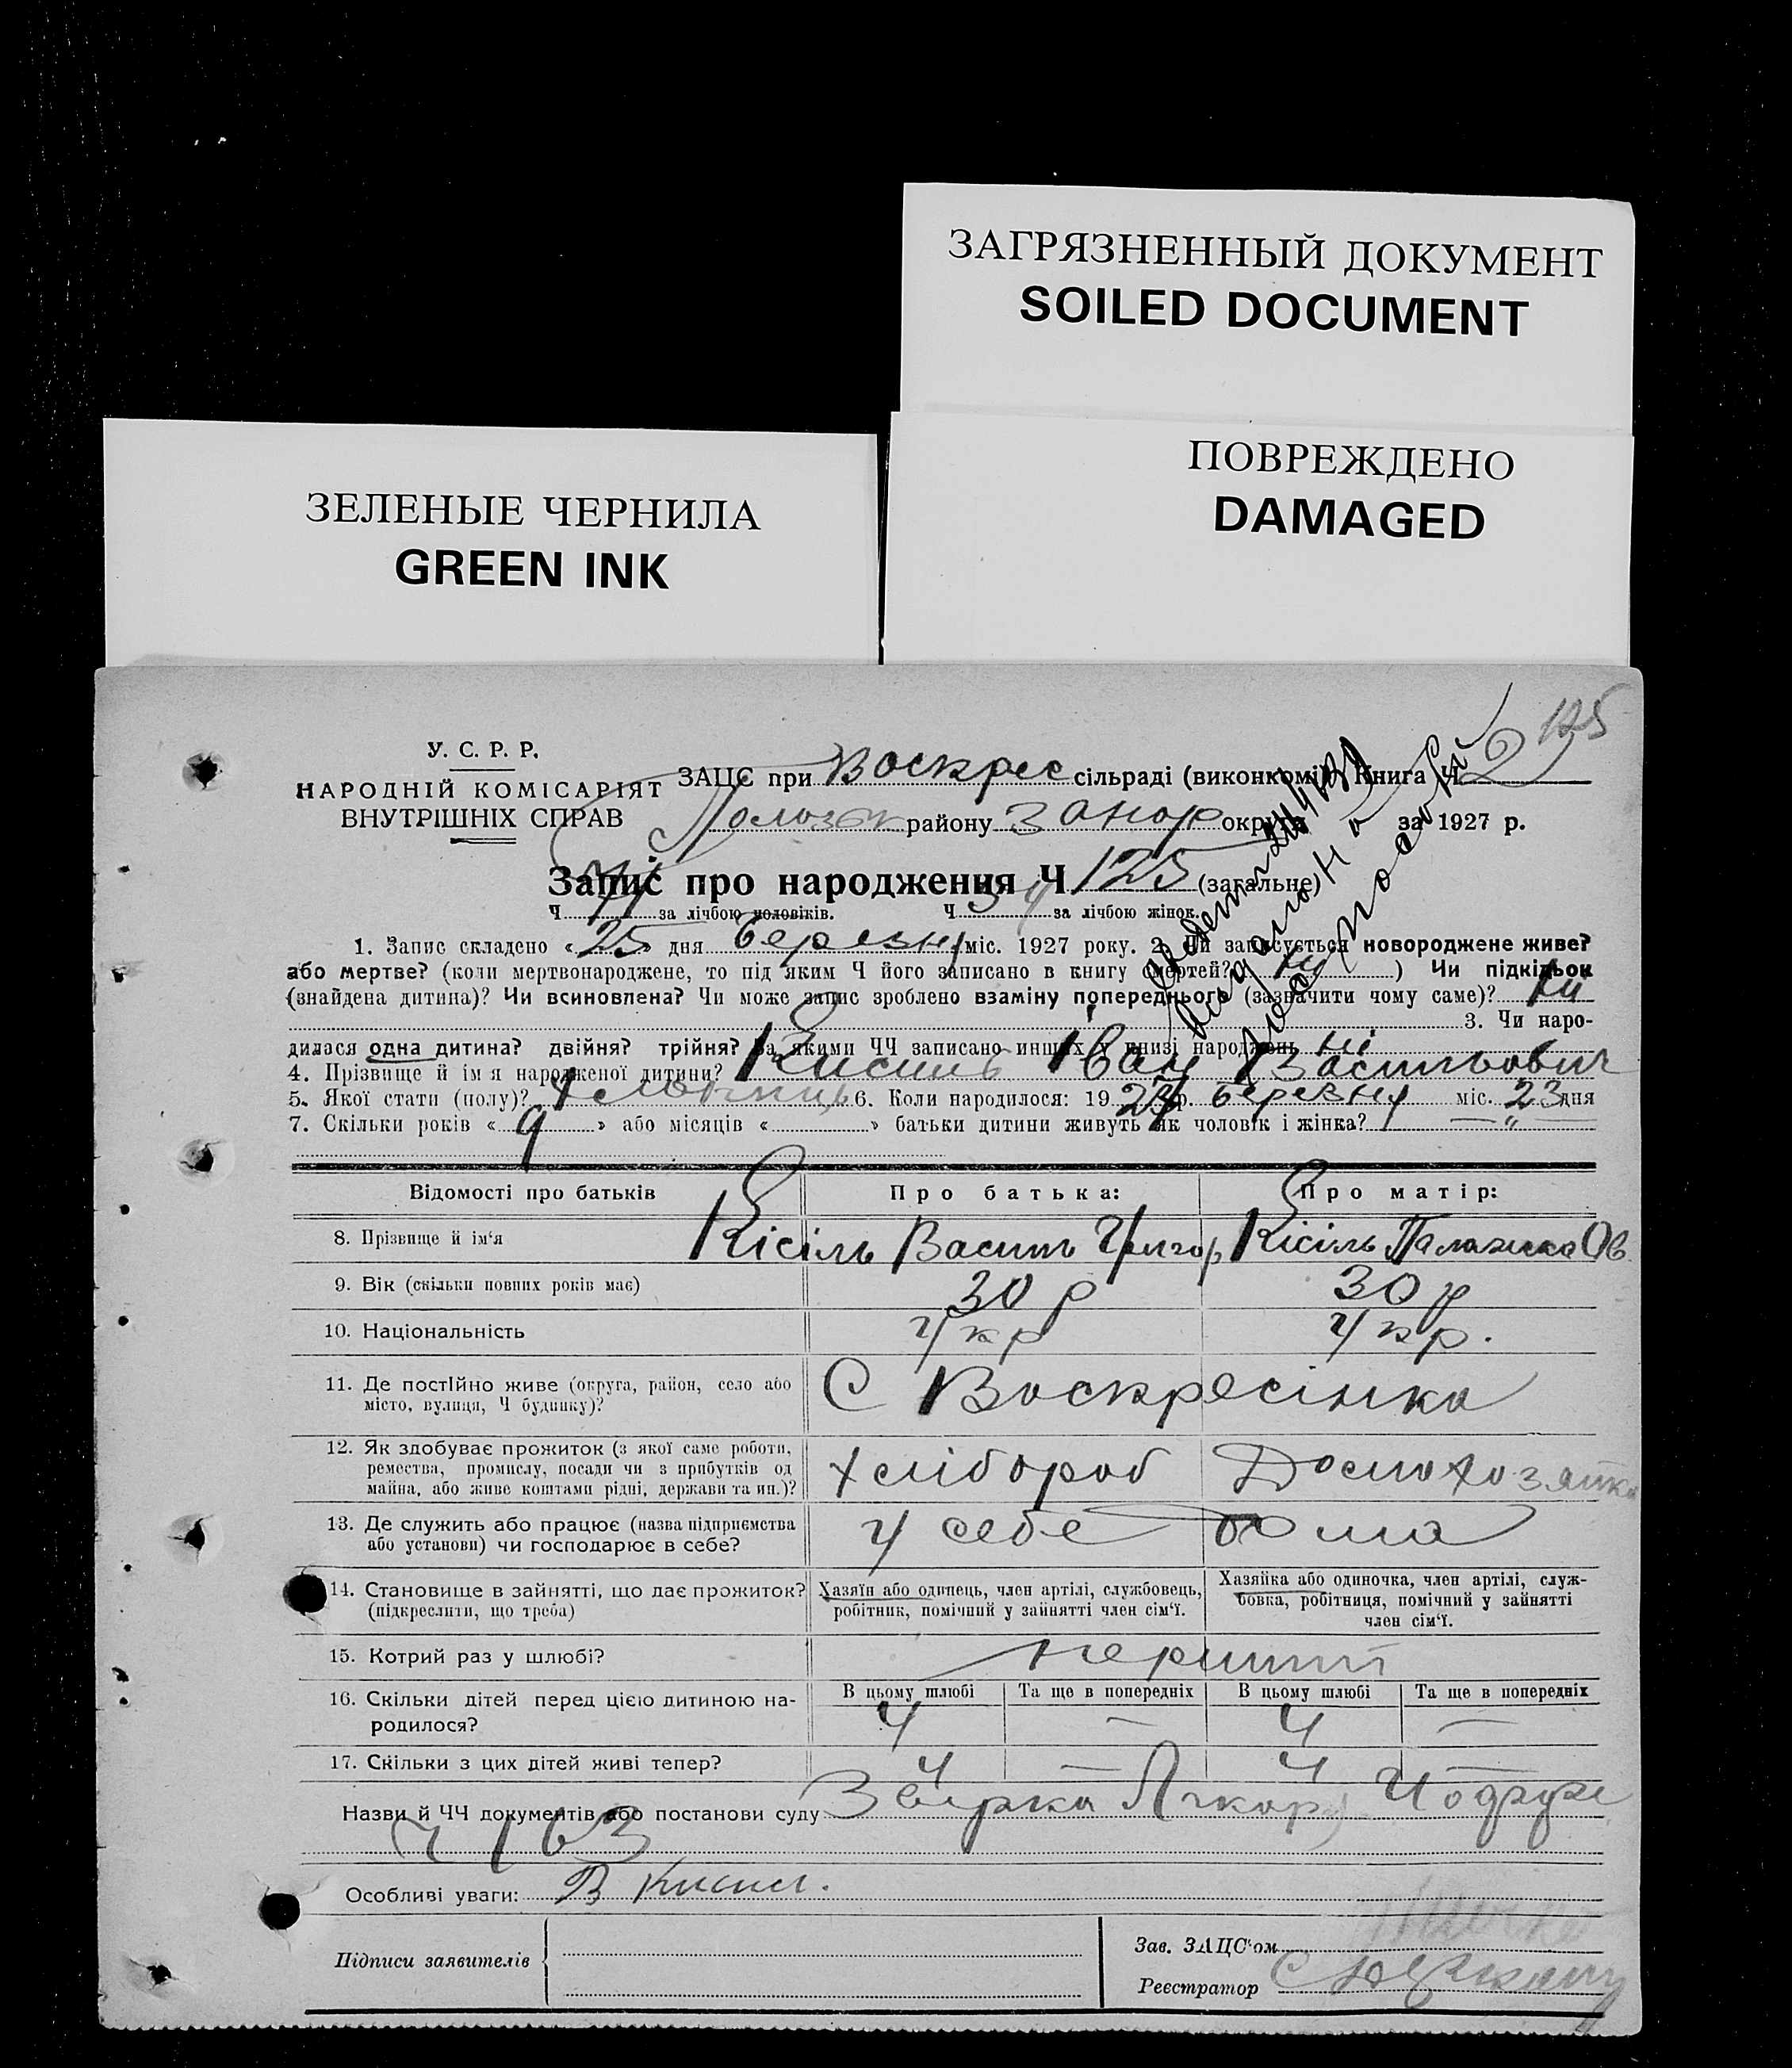 ЗАГРЯЗНЕННЫЙ ДОКУМЕНТ
SOILED DOCUMENT
ПОВРЕЖДЕНО
DAMAGED
ЗЕЛЕНЫЕ ЧЕРНИЛА
GREEN INK
125
У. С. Р. Р.
НАРОДНІЙ КОМІСАРІЯТ
ВНУТРІШНІХ СПРАВ
ЗАЦС при Воскрес сільраді (виконкомі) Книга Ч 2
району Запор округи за 1927 р.
Запис про народження Ч 125 (загальне)
Ч 71 за лічбою чоловіків. Ч 54 за лічбою жінок.
1. Запис складено «25» дня березня міс. 1927 року. 2. Чи записується новороджене живе?
або мертве? (коли мертвонароджене, то під яким Ч його записано в книгу смертей? ні) Чи підкідьок
(знайдена дитина)? Чи всиновлена? Чи може запис зроблено взаміну попереднього (зазначити чому саме)? ні
3. Чи наро-
дилася одна дитина? двійня? трійня? За якими ЧЧ записано инших у книзі народжень ні
4. Прізвище й ім'я народженої дитини? Кисиль Іван Васильович
5. Якої стати (полу)? хлопець 6. Коли народилося: 1927 р. березня міс. 23 дня
7. Скільки років «9» або місяців «» батьки дитини живуть як чоловік і жінка? — „ —
Відомості про батьків Про батька: Про матір:
8. Прізвище й ім'я Кісіль Василь Григор Кісіль Палажка Ов.
9. Вік (скільки повних років має) 30 р 30 р
10. Національність Укр Укр.
11. Де постІйно живе (округа, район, село або
місто, вулиця, Ч будинку)? С Воскресінка
12. Як здобуває прожиток (з якої саме роботи,
ремества, промислу, посади чи з прибутків од
майна, або живе коштами рідні, держави та ин.)? Хлібороб Домохозяйка
13. Де служить або працює (назва підприємства
або установи) чи господарює в себе? У себе дома
14. Становище в зайнятті, що дає прожиток?
(підкреслити, що треба)
Хазяїн або одинець, член артілі, службовець,
робітник, помічний у зайнятті член сім'ї.
Хазяйка або одиночка, член артілі, служ-
бовка, робітниця, помічний у зайнятті
член сім'ї.
15. Котрий раз у шлюбі? перший
16. Скільки дітей перед цією дитиною на-
родилося?
В цьому шлюбі Та ще в попередніх В цьому шлюбі Та ще в попередніх
4 — 4 —
17. Скільки з цих дітей живі тепер? 4 — 4 —
Назви й ЧЧ документів або постанови суду
Ч 163
Особливі уваги: В Кисил.
Підписи заявителів
Зав. ЗАЦС'ом
Реєстратор